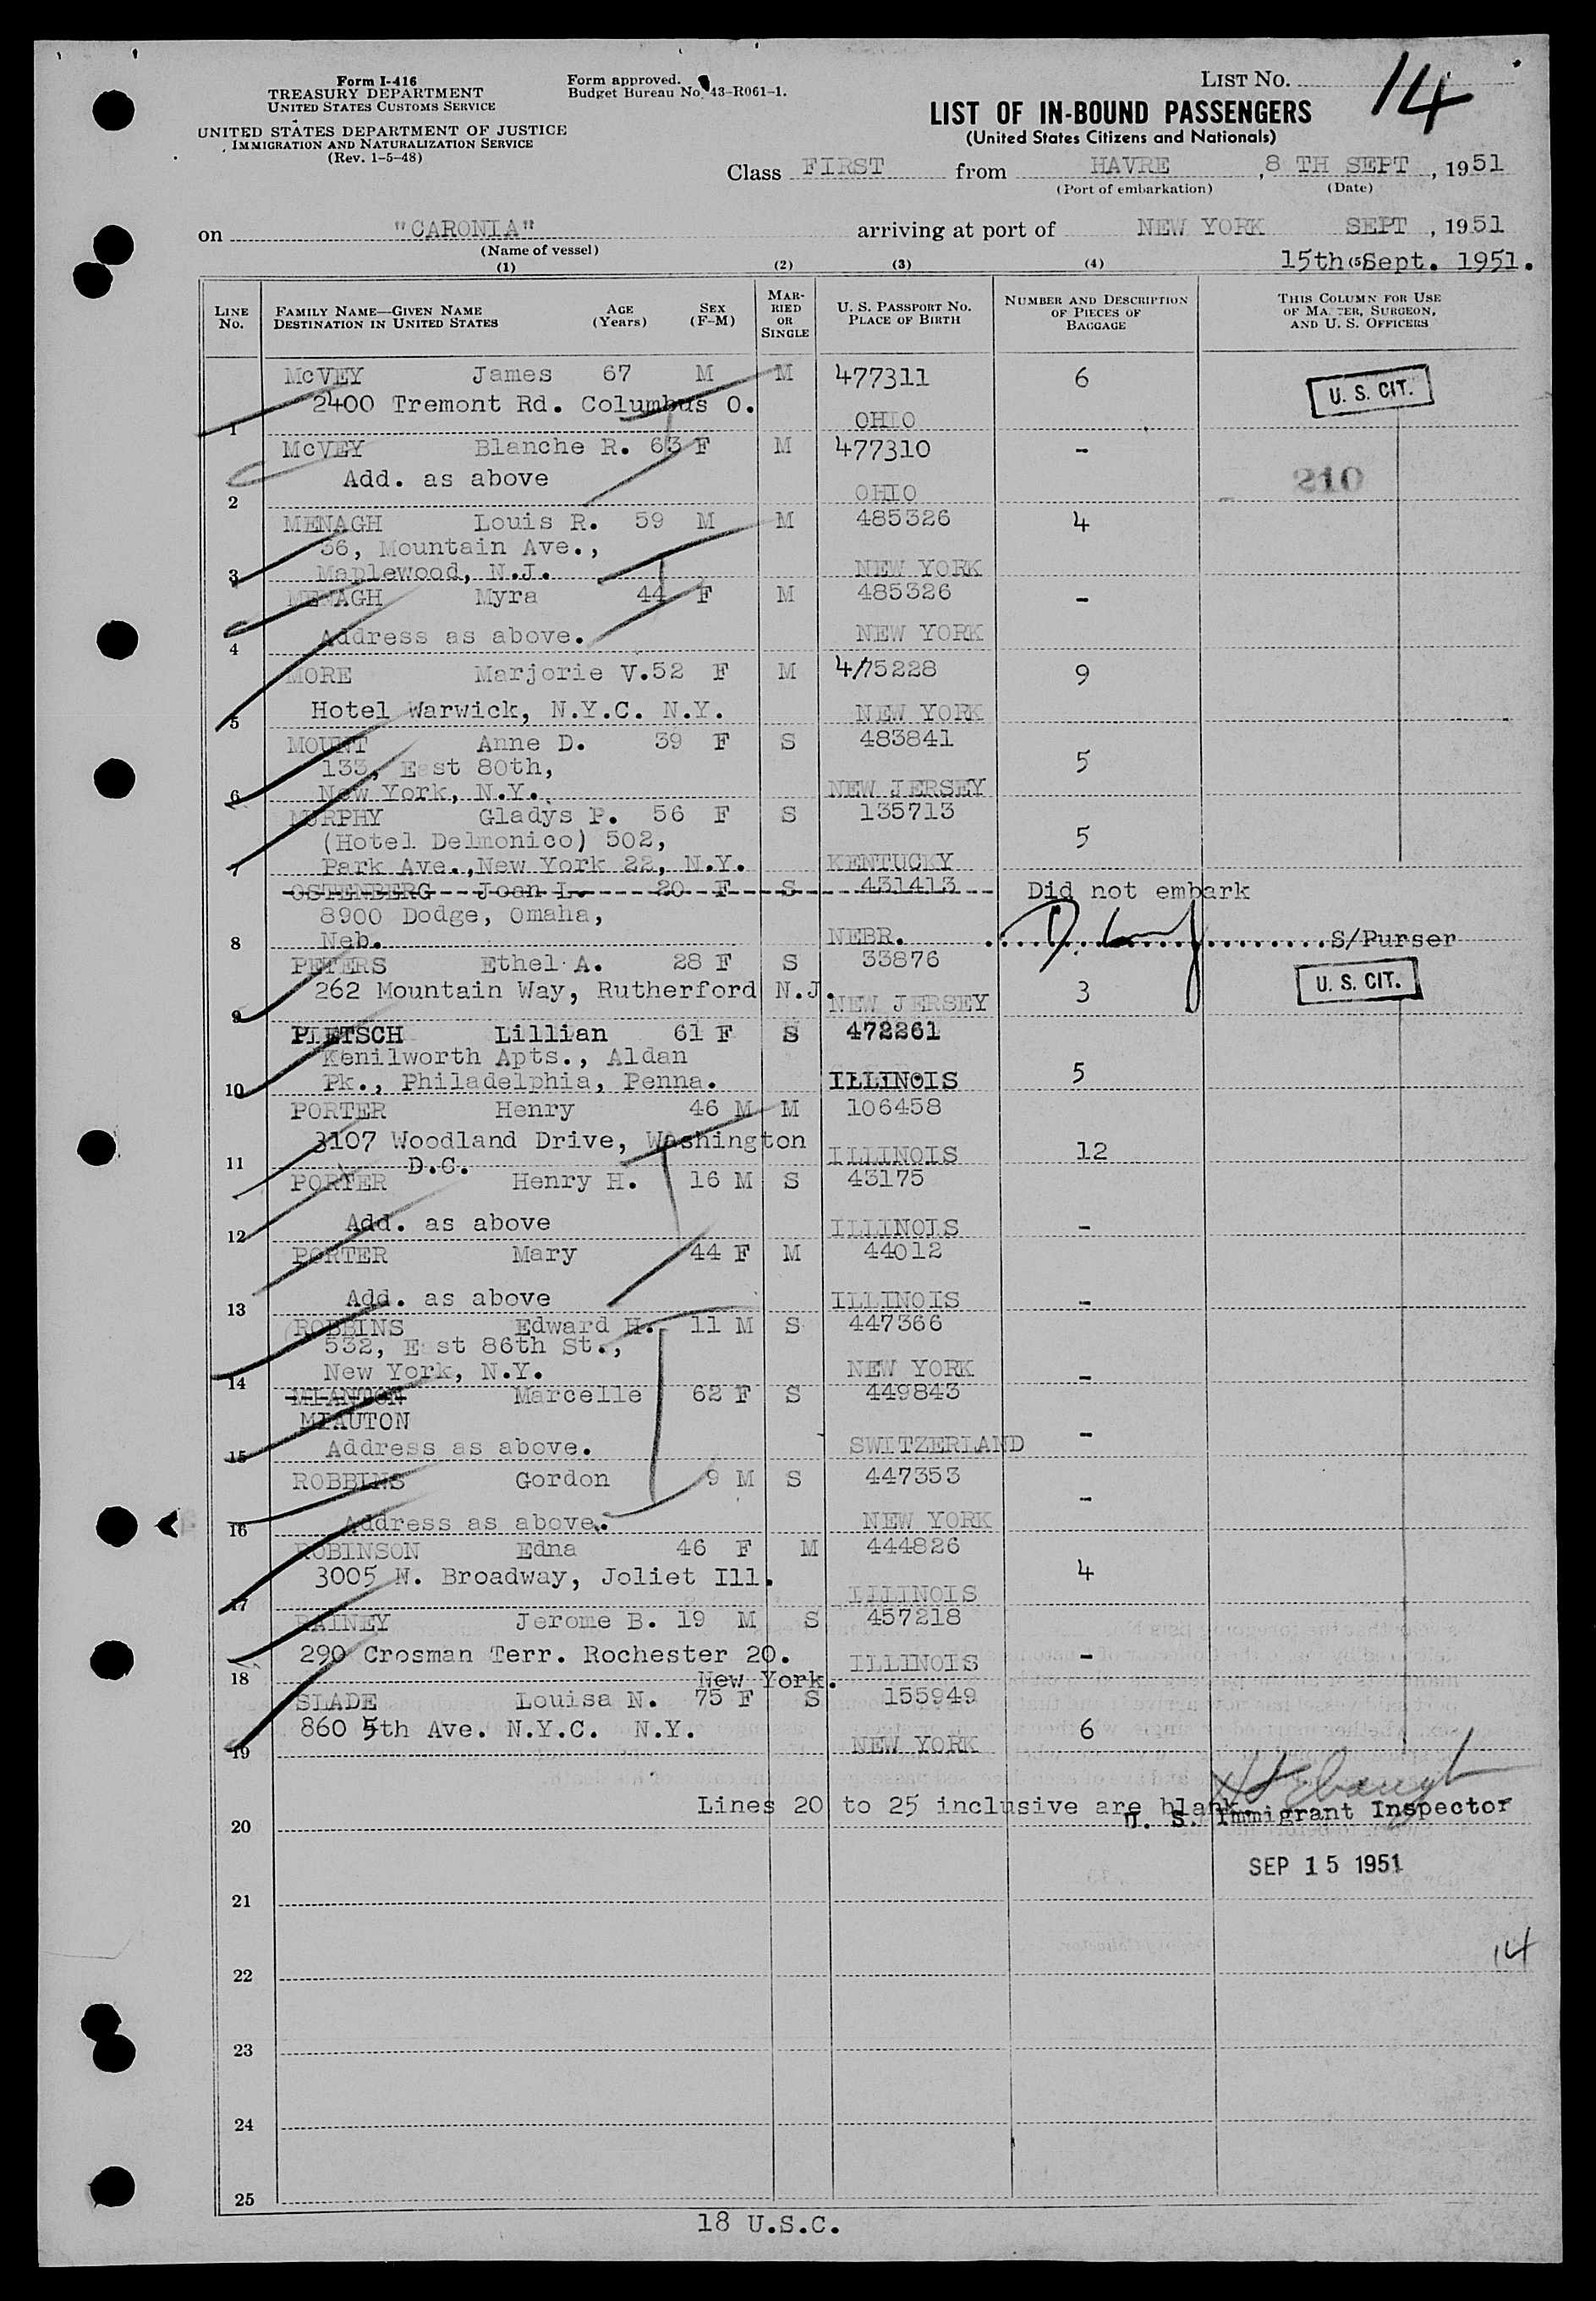 Form I-416
TREASURY DEPARTMENT
UNITED STATES CUSTOMS SERVICE
UNITED STATES DEPARTMENT OF JUSTICE
IMMIGRATION AND NATURALIZATION SERVICE
(Rev. 1-5-48)
Form approved.
Budget Bureau No. 43-R061-1.
LIST NO. 14
LIST OF IN-BOUND PASSENGERS
(United States Citizens and Nationals)
Class FIRST from HAVRE, 8 TH SEPT, 1951
(Port of embarkation) (Date)
on "CARONIA" arriving at port of NEW YORK SEPT, 1951
(Name of vessel)
15th Sept. 1951.
(1) (2) (3) (4) (5)
LINE NO. FAMILY NAME—GIVEN NAME DESTINATION IN UNITED STATES AGE (Years) SEX (F-M) MARRIED OR SINGLE U. S. PASSPORT NO. PLACE OF BIRTH NUMBER AND DESCRIPTION OF PIECES OF BAGGAGE THIS COLUMN FOR USE OF MASTER, SURGEON, AND U. S. OFFICERS
McVEY James 67 M M 477311 6 U. S. CIT.
2400 Tremont Rd. Columbus O.
1 OHIO
McVEY Blanche R. 63 F M 477310 -
Add. as above 210
2 OHIO
MENAGH Louis R. 59 M M 485326 4
36, Mountain Ave.,
3 Maplewood, N.J. NEW YORK
MENAGH Myra 44 F M 485326 -
4 Address as above. NEW YORK
MORE Marjorie V. 52 F M 475228 9
5 Hotel Warwick, N.Y.C. N.Y. NEW YORK
MOUNT Anne D. 39 F S 483841
133, East 80th, 5
6 New York, N.Y. NEW JERSEY
MURPHY Gladys P. 56 F S 135713
(Hotel Delmonico) 502, 5
7 Park Ave., New York 22, N.Y. KENTUCKY
OSTENBERG Joan L. 20 F S 431413 Did not embark
8900 Dodge, Omaha,
8 Neb. NEBR. S/Purser
PETERS Ethel A. 28 F S 33876
262 Mountain Way, Rutherford N.J. 3 U. S. CIT.
9 NEW JERSEY
PIETSCH Lillian 61 F S 472261
Kenilworth Apts., Aldan
10 Pk., Philadelphia, Penna. ILLINOIS 5
PORTER Henry 46 M M 106458
3107 Woodland Drive, Washington 12
11 D.C. ILLINOIS
PORTER Henry H. 16 M S 43175
12 Add. as above ILLINOIS -
PORTER Mary 44 F M 44012
13 Add. as above ILLINOIS -
ROBBINS Edward H. 11 M S 447366
532, East 86th St.,
14 New York, N.Y. NEW YORK -
MIANTON Marcelle 62 F S 449843
MIAUTON
15 Address as above. SWITZERLAND -
ROBBINS Gordon 9 M S 447353
16 Address as above. NEW YORK -
ROBINSON Edna 46 F M 444826
3005 N. Broadway, Joliet Ill. 4
17 ILLINOIS
RAINEY Jerome B. 19 M S 457218
290 Crosman Terr. Rochester 20. ILLINOIS -
18 New York.
SLADE Louisa N. 75 F S 155949
860 5th Ave. N.Y.C. N.Y. 6
19 NEW YORK
Lines 20 to 25 inclusive are blank.
20 U. S. Immigrant Inspector
SEP 15 1951
21
22 14
23
24
25
18 U.S.C.